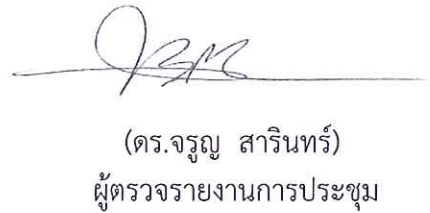 (ดร.จรูญ สารินทร์)
ผู้ตรวจรายงานการประชุม